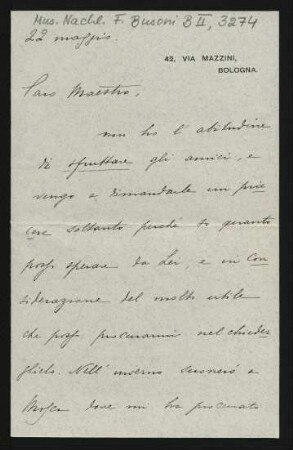 Mus. Nachl. F. Busoni B II, 3274
22 maggio.
42, VIA MAZZINI,
BOLOGNA.
Caro Maestro,
non ho l'abitudine
di sfruttare gli amici, e
vengo a dimandarle un pia-
cere soltanto perchè so quanto
poss. sperare da Lei, e in con-
siderazione del molto utile
che poss. procurarmi nel chieder-
glielo. Nell' inverno suonerò a
Mosca dove mi ha procurato